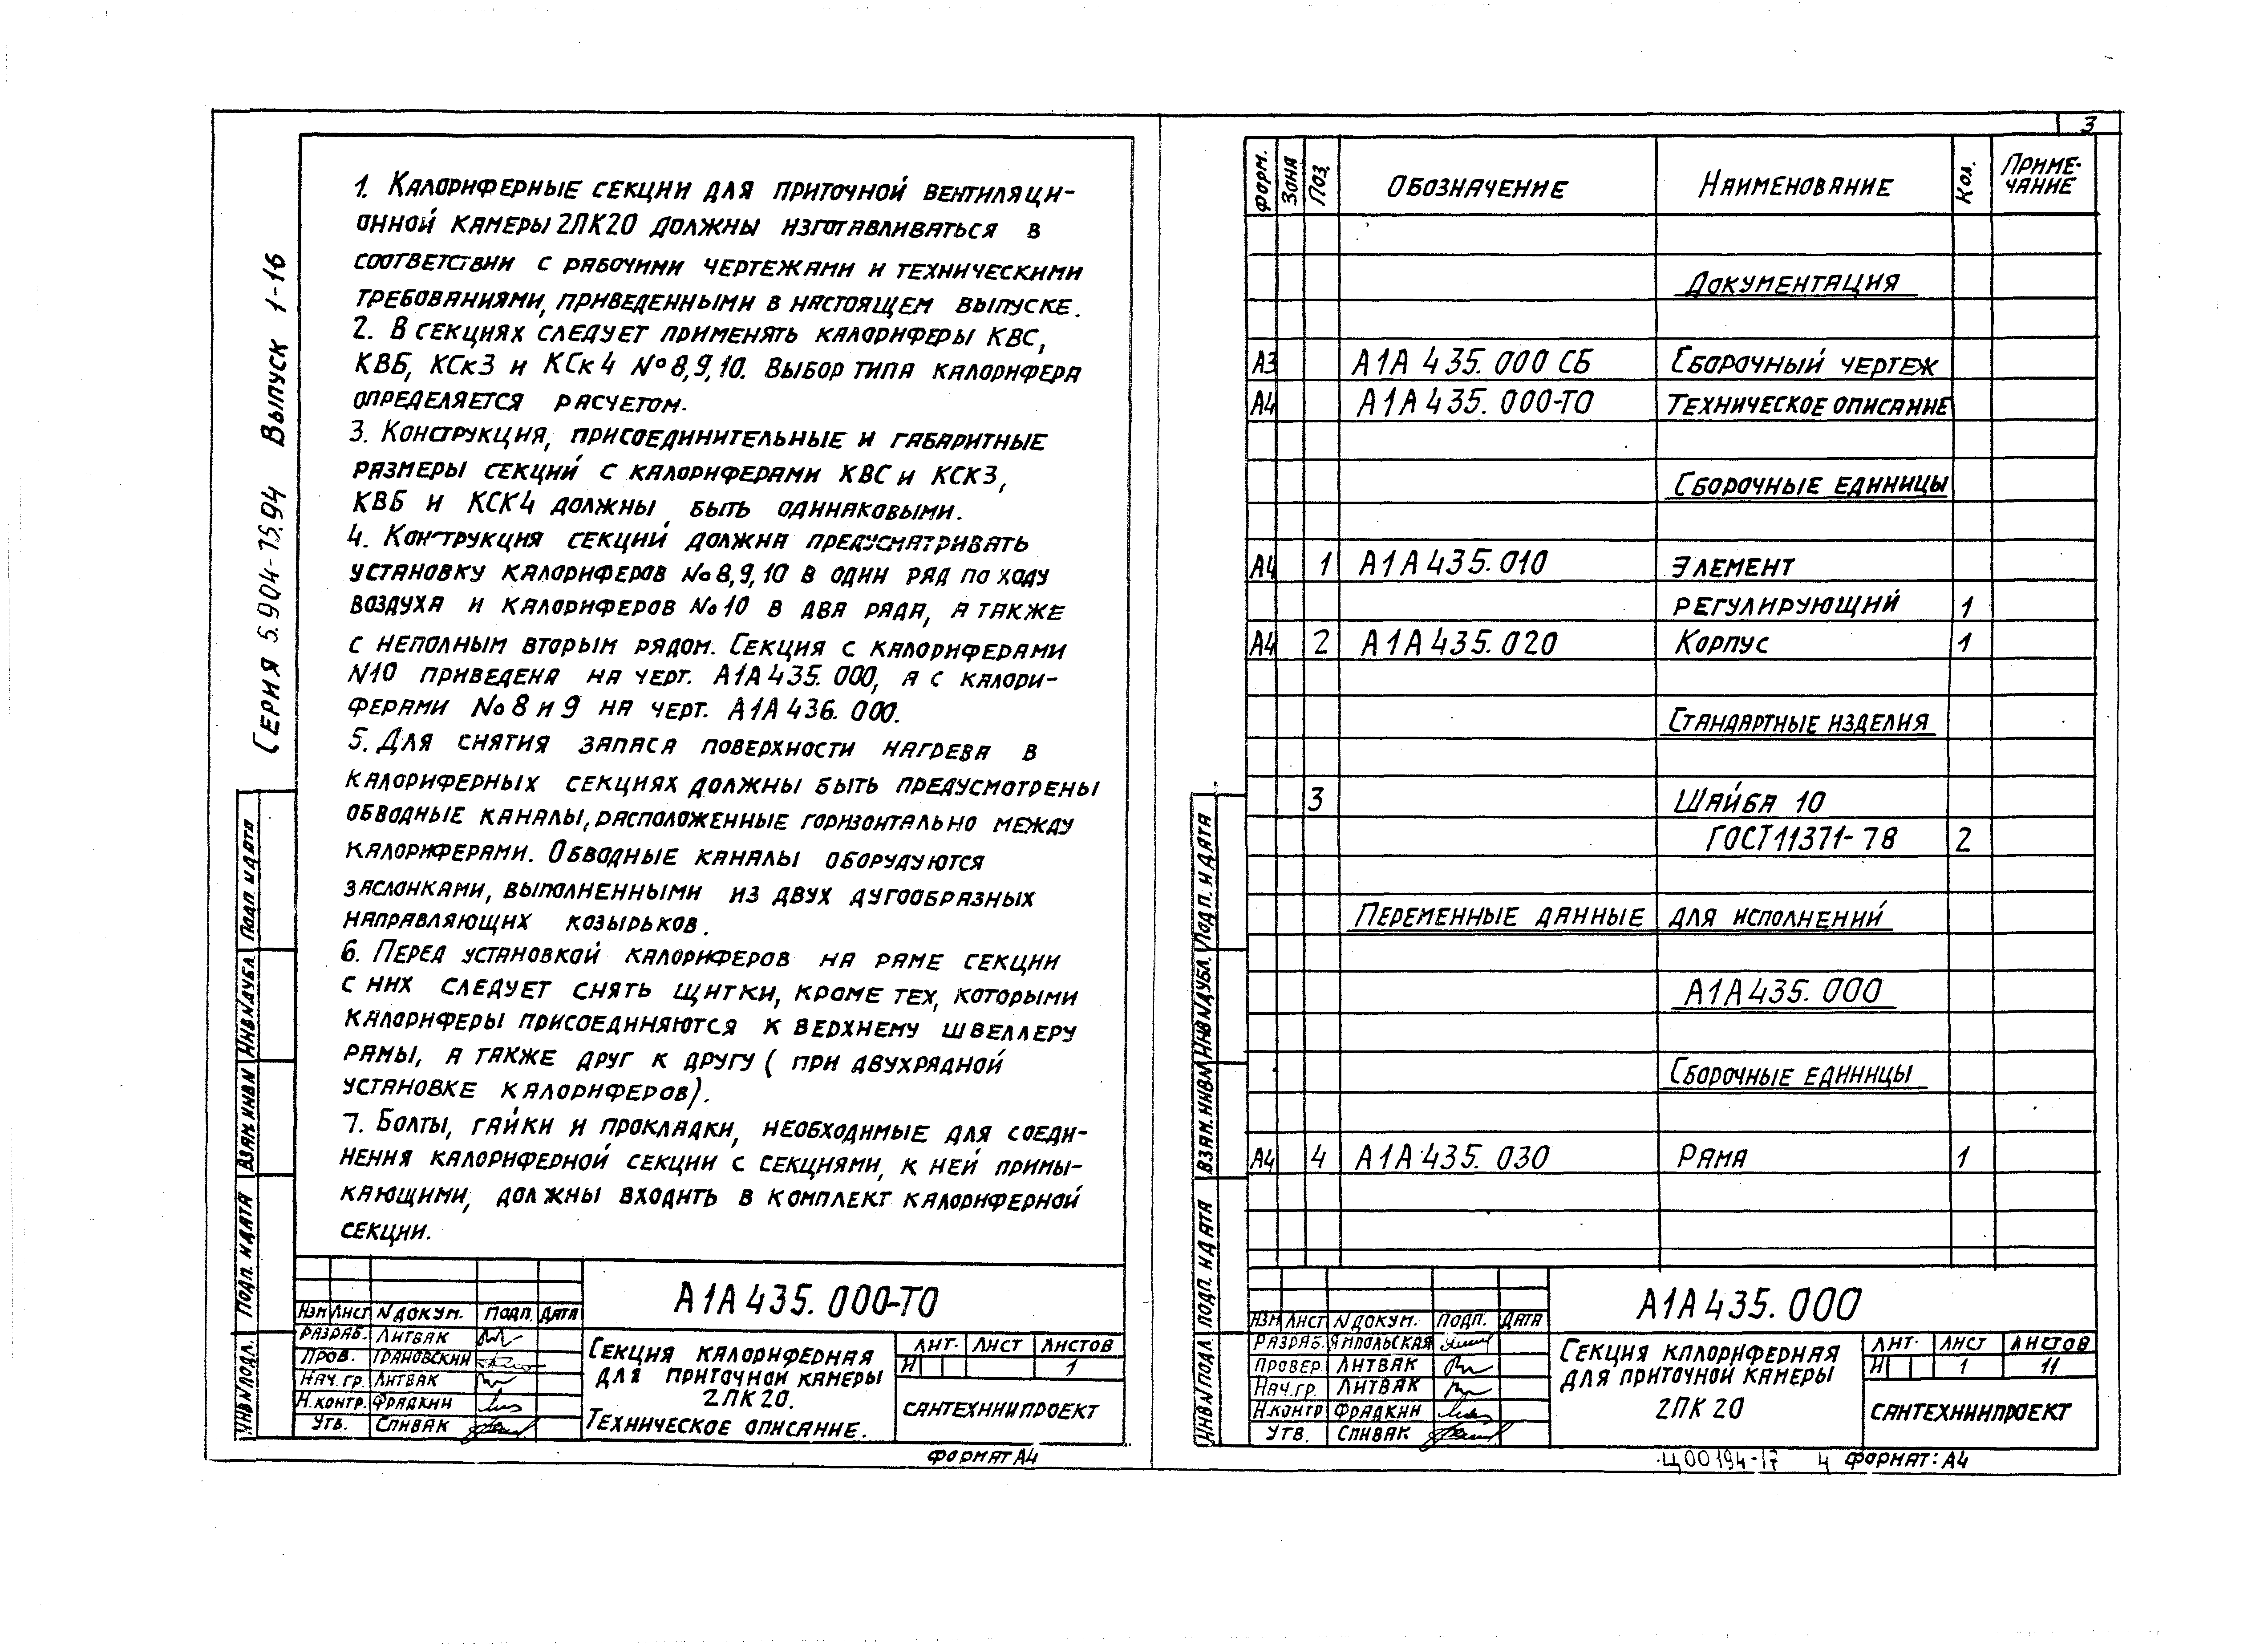 Серия 5.904-75.94 Выпуск 1-16
1. Калориферные секции для приточной вентиляци-
онной камеры 2ПК20 должны изготавливаться в
соответствии с рабочими чертежами и техническими
требованиями, приведенными в настоящем выпуске.
2. В секциях следует применять калориферы КВС,
КВБ, КСк3 и КСк4 №8,9,10. Выбор типа калорифера
определяется расчетом.
3. Конструкция, присоединительные и габаритные
размеры секций с калориферами КВС и КСК3,
КВБ и КСК4 должны быть одинаковыми.
4. Конструкция секций должна предусматривать
установку калориферов №8,9,10 в один ряд по ходу
воздуха и калориферов №10 в два ряда, а также
с неполным вторым рядом. Секция с калориферами
N10 приведена на черт. А1А435.000, а с калори-
ферами №8 и 9 на черт. А1А436.000.
5. Для снятия запаса поверхности нагрева в
калориферных секциях должны быть предусмотрены
обводные каналы, расположенные горизонтально между
калориферами. Обводные каналы оборудуются
заслонками, выполненными из двух дугообразных
направляющих козырьков.
6. Перед установкой калориферов на раме секции
с них следует снять щитки, кроме тех, которыми
калориферы присоединяются к верхнему швеллеру
рамы, а также друг к другу (при двухрядной
установке калориферов).
7. Болты, гайки и прокладки, необходимые для соеди-
нения калориферной секции с секциями, к ней примы-
кающими, должны входить в комплект калориферной
секции.
Подп. и дата
Инв N дубл.
Взам. инв N
Подп. и дата
Инв N подл.
А1А435.000-ТО
Изм Лист N докум. Подп. Дата
Разраб. Литвак
Пров. Грановский
Нач. гр. Литвак
Н.контр. Фрадкин
Утв. Спивак
Секция калориферная
для приточной камеры
2ПК20.
Техническое описание.
Лит. Лист Листов
И 1
Сантехниипроект
Формат А4
3
Форм. Зона Поз. Обозначение Наименование Кол. Приме-
чание
Документация
А3 А1А435.000 СБ Сборочный чертеж
А4 А1А435.000-ТО Техническое описание
Сборочные единицы
А4 1 А1А435.010 Элемент
регулирующий 1
А4 2 А1А435.020 Корпус 1
Стандартные изделия
3 Шайба 10
ГОСТ 11371-78 2
Переменные данные для исполнений
А1А435.000
Сборочные единицы
А4 4 А1А435.030 Рама 1
Подп. и дата
Инв N дубл.
Взам. инв N
Подп. и дата
Инв N подл.
А1А435.000
Изм Лист N докум. Подп. Дата
Разраб. Ямпольская
Провер. Литвак
Нач.гр. Литвак
Н.контр Фрадкин
Утв. Спивак
Секция калориферная
для приточной камеры
2ПК20
Лит. Лист Листов
И 1 11
Сантехниипроект
Ц00194-17 4 Формат: А4